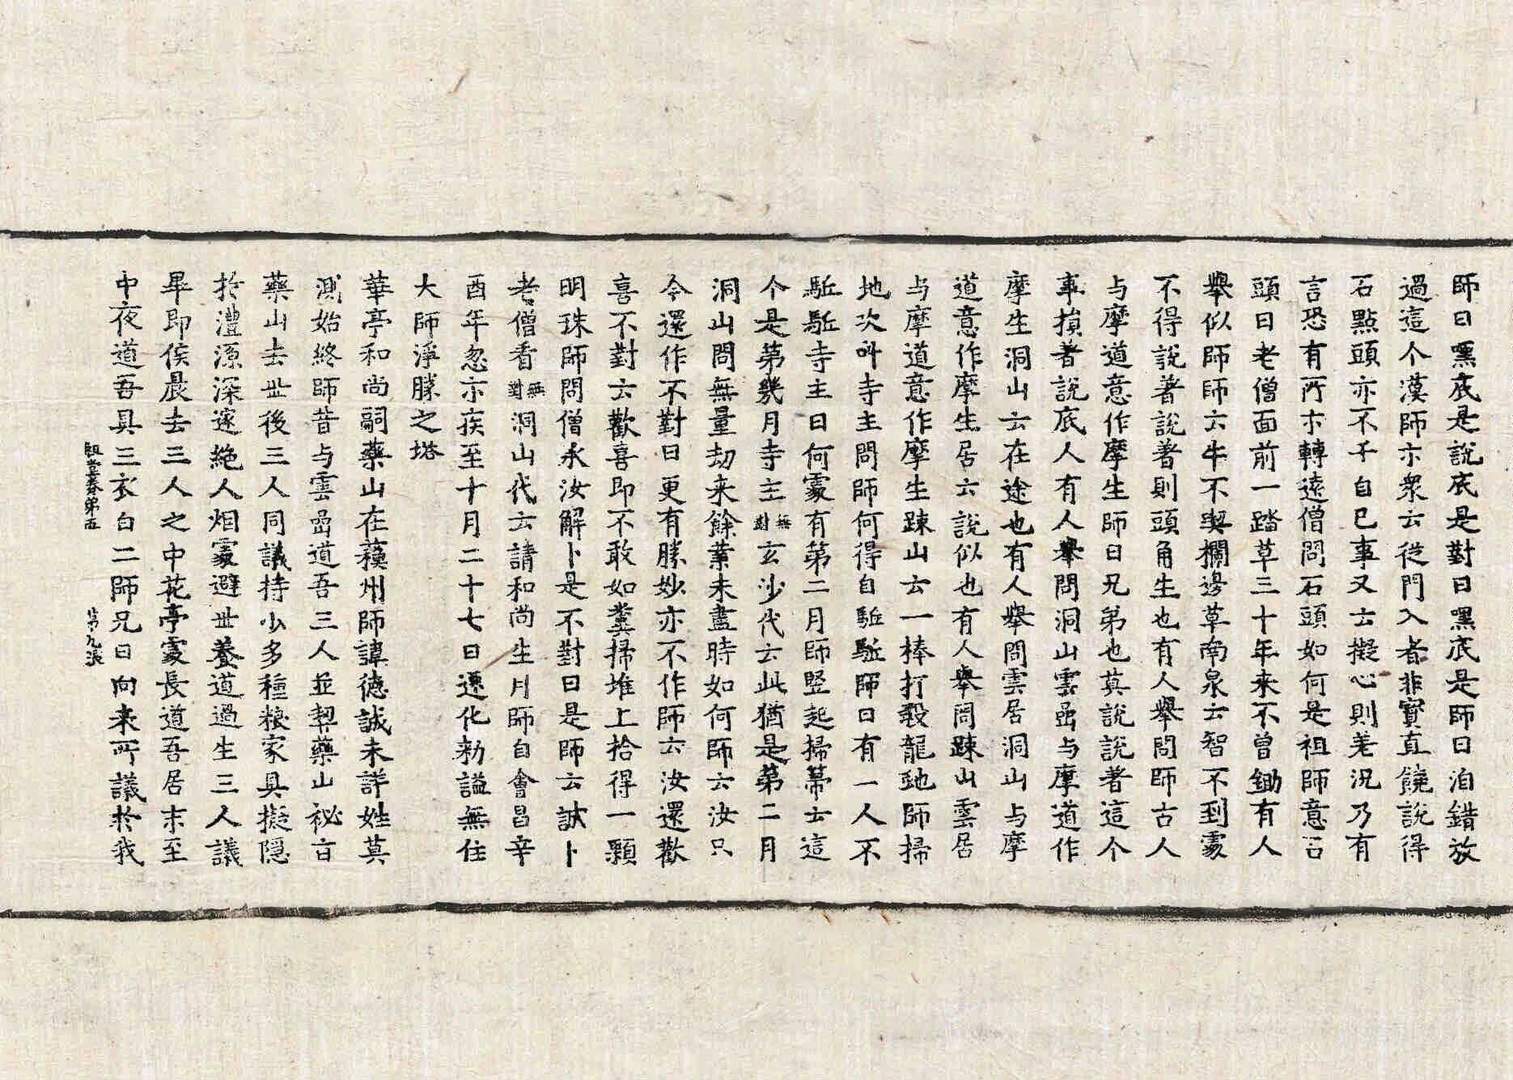 師曰黑底是說底是對曰黑底是師曰洎錯放
過這个漢師示衆云從門入者非寶直饒說得
石點頭亦不干自己事又云擬心則差況乃有
言恐有所示轉遠僧問石頭如何是祖師意石
頭曰老僧面前一踏草三十年来不曾鋤有人
舉似師師云牛不喫欄邊草南泉云智不到處
不得說著說著則頭角生也有人舉問師古人
与摩道意作摩生師曰兄弟也莫說說著這个
事損著說底人有人舉問洞山雲嵒与摩道作
摩生洞山云在途也有人舉問雲居洞山与摩
道意作摩生居云說似也有人舉問踈山雲居
与摩道意作摩生踈山云一棒打殺龍虵師掃
地次叫寺主問師何得自駈駈師曰有一人不
駈駈寺主曰何處有第二月師竪起掃菷云這
个是第幾月寺主無對玄沙代云此猶是第二月
洞山問無量劫来餘業未盡時如何師云汝只
今還作不對曰更有勝妙亦不作師云汝還歡
喜不對云歡喜即不敢如糞掃堆上拾得一顆
明珠師問僧承汝解卜是不對曰是師云試卜
老僧看無對洞山代云請和尚生月師自會昌辛
酉年忽示疾至十月二十七日遷化勑謚無住
大師淨勝之塔
華亭和尚嗣藥山在蘓州師諱德誠未詳姓莫
測始終師昔与雲嵒道吾三人並契藥山祕言
藥山去世後三人同議持少多種粮家具擬隱
於澧源深邃絶人烟處避世養道過生三人議
畢即俟晨去三人之中花亭處長道吾居末至
中夜道吾具三衣白二師兄曰向来所議於我
祖堂卷第五 第九張